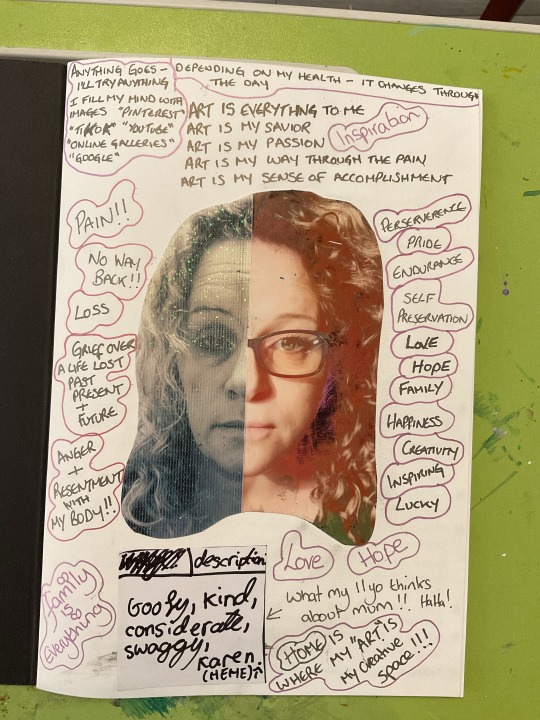 ANYTHING GOES -
I'LL TRY ANYTHING
I FILL MY MIND WITH
IMAGES "PINTEREST"
"TIKTOK" "YOUTUBE"
"ONLINE GALLERIES"
"GOOGLE"
DEPENDING ON MY HEALTH - IT CHANGES THROUGH
THE DAY
ART IS EVERYTHING TO ME
ART IS MY SAVIOR
ART IS MY PASSION
ART IS MY WAY THROUGH THE PAIN
ART IS MY SENSE OF ACCOMPLISHMENT
Inspiration
PAIN!!
NO WAY
BACK!!
LOSS
GRIEF OVER
A LIFE LOST
PAST
PRESENT
+
FUTURE
ANGER
+
RESENTMENT
WITH
MY BODY!!
Family
is
Everything
PERSERVERENCE
PRIDE
ENDURANCE
SELF
PRESERVATION
LOVE
HOPE
FAMILY
HAPPINESS
CREATIVITY
INSPIRING
LUCKY
Love
Hope
description
Goofy, kind,
considerate,
swaggy,
Karen.
(MEME)↑
← what my 11yo thinks
about mum!! HaHa!
HOME IS
WHERE MY "ART" IS
MY CREATIVE
SPACE!!!